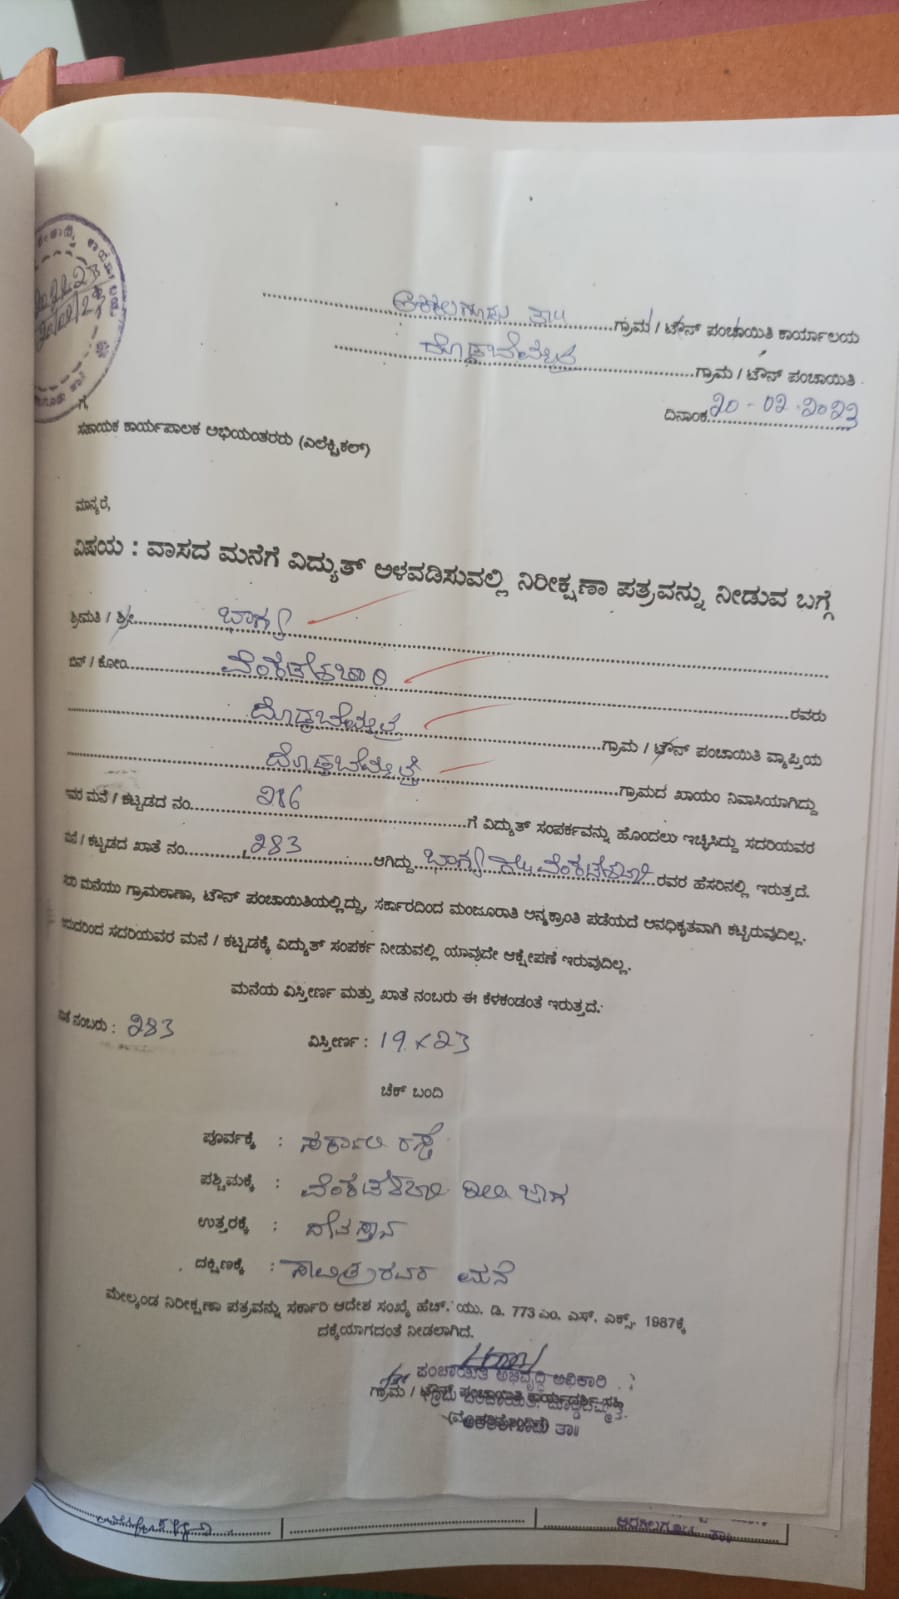 ಅರಕಲಗೂಡು ತಾ॥ ಗ್ರಾಮ / ಟೌನ್ ಪಂಚಾಯಿತಿ ಕಾರ್ಯಾಲಯ
ದೊಡ್ಡಬೆಮ್ಮತ್ತಿ ಗ್ರಾಮ / ಟೌನ್ ಪಂಚಾಯಿತಿ
ದಿನಾಂಕ 20-02-2023
ಗೆ,
ಸಹಾಯಕ ಕಾರ್ಯಪಾಲಕ ಅಭಿಯಂತರರು (ಎಲೆಕ್ಟ್ರಿಕಲ್)
ಮಾನ್ಯರೆ,
ವಿಷಯ : ವಾಸದ ಮನೆಗೆ ವಿದ್ಯುತ್ ಅಳವಡಿಸುವಲ್ಲಿ ನಿರೀಕ್ಷಣಾ ಪತ್ರವನ್ನು ನೀಡುವ ಬಗ್ಗೆ
ಶ್ರೀಮತಿ / ಶ್ರೀ ಭಾಗ್ಯ
ಬಿನ್ / ಕೋಂ ವೆಂಕಟೇಶಚಾರಿ ರವರು
ದೊಡ್ಡಬೆಮ್ಮತ್ತಿ ಗ್ರಾಮ / ಟೌನ್ ಪಂಚಾಯಿತಿ ವ್ಯಾಪ್ತಿಯ
ದೊಡ್ಡಬೆಮ್ಮತ್ತಿ ಗ್ರಾಮದ ಖಾಯಂ ನಿವಾಸಿಯಾಗಿದ್ದು
ಇವರ ಮನೆ / ಕಟ್ಟಡದ ನಂ. 286 ಗೆ ವಿದ್ಯುತ್ ಸಂಪರ್ಕವನ್ನು ಹೊಂದಲು ಇಚ್ಛಿಸಿದ್ದು ಸದರಿಯವರ
ಮನೆ / ಕಟ್ಟಡದ ಖಾತೆ ನಂ. 283 ಆಗಿದ್ದು ಭಾಗ್ಯ ವೆಂಕಟೇಶಚಾರಿ ರವರ ಹೆಸರಿನಲ್ಲಿ ಇರುತ್ತದೆ.
ಸದರಿ ಮನೆಯು ಗ್ರಾಮಠಾಣಾ, ಟೌನ್ ಪಂಚಾಯಿತಿಯಲ್ಲಿದ್ದು, ಸರ್ಕಾರದಿಂದ ಮಂಜೂರಾತಿ ಅನ್ಯಕ್ರಾಂತಿ ಪಡೆಯದೆ ಅನಧಿಕೃತವಾಗಿ ಕಟ್ಟಿರುವುದಿಲ್ಲ.
ಇದುದರಿಂದ ಸದರಿಯವರ ಮನೆ / ಕಟ್ಟಡಕ್ಕೆ ವಿದ್ಯುತ್ ಸಂಪರ್ಕ ನೀಡುವಲ್ಲಿ ಯಾವುದೇ ಆಕ್ಷೇಪಣೆ ಇರುವುದಿಲ್ಲ.
ಮನೆಯ ವಿಸ್ತೀರ್ಣ ಮತ್ತು ಖಾತೆ ನಂಬರು ಈ ಕೆಳಕಂಡಂತೆ ಇರುತ್ತದೆ.
ಖಾತೆ ನಂಬರು : 283 ವಿಸ್ತೀರ್ಣ : 19 x 23
ಚೆಕ್ ಬಂದಿ
ಪೂರ್ವಕ್ಕೆ : ಸರ್ಕಾರಿ ರಸ್ತೆ
ಪಶ್ಚಿಮಕ್ಕೆ : ವೆಂಕಟೇಶಚಾರಿ ಖಾಲಿ ಜಾಗ
ಉತ್ತರಕ್ಕೆ : ದೇವಸ್ಥಾನ
ದಕ್ಷಿಣಕ್ಕೆ : ಸಾವಿತ್ರರವರ ಮನೆ
ಮೇಲ್ಕಂಡ ನಿರೀಕ್ಷಣಾ ಪತ್ರವನ್ನು ಸರ್ಕಾರಿ ಆದೇಶ ಸಂಖ್ಯೆ ಹೆಚ್. ಯು. ಡಿ. 773 ಎಂ. ಎಸ್. ಎಕ್ಸ್. 1987ಕ್ಕೆ
ದಕ್ಕೆಯಾಗದಂತೆ ನೀಡಲಾಗಿದೆ.
ಪಂಚಾಯಿತಿ ಅಭಿವೃದ್ಧಿ ಅಧಿಕಾರಿ
ಗ್ರಾಮ / ಟೌನ್ ಪಂಚಾಯಿತಿ ಕಾರ್ಯದರ್ಶಿ ಸಹಿ
ಅರಕಲಗೂಡು ತಾ॥
ಅರಕಲಗೂಡು ತಾ॥